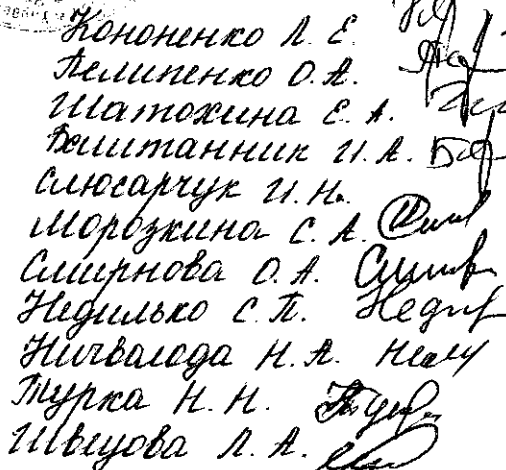 Кононенко Л. Е.
Пелипенко О. А.
Шатохина Е. А.
Баштанник И. А.
Слюсарчук И. Н.
Морозкина С. А.
Смирнова О. А.
Недилько С. П. Недил
Ничвалода Н. А.
Турка Н. Н.
Швецова Л. А.